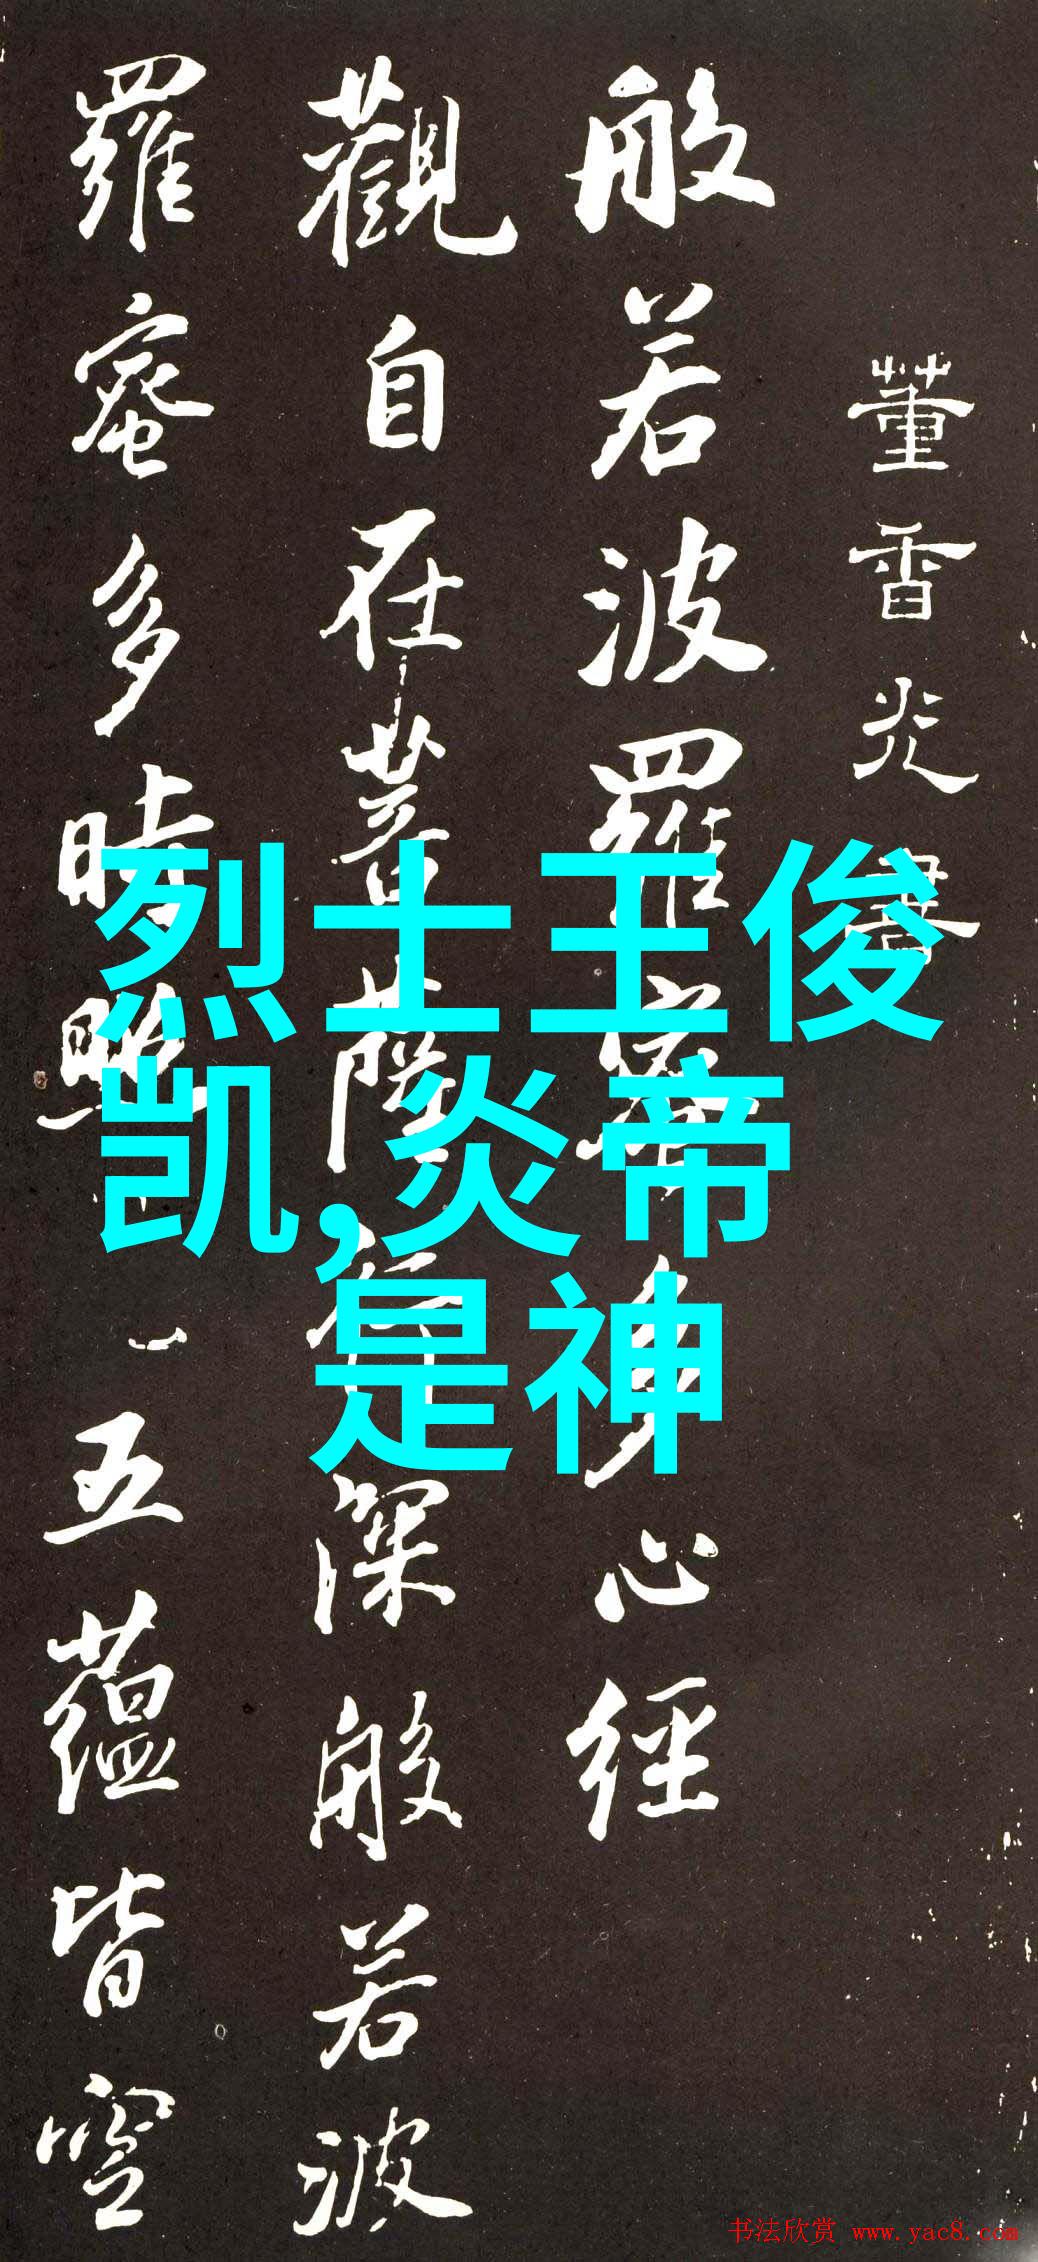 董香光書
般若波羅蜜多心經
觀自在菩薩行深般若波
羅蜜多時照見五蘊皆空
烈士王俊
凯,炎帝
是神
书法欣赏 www.yac8.com